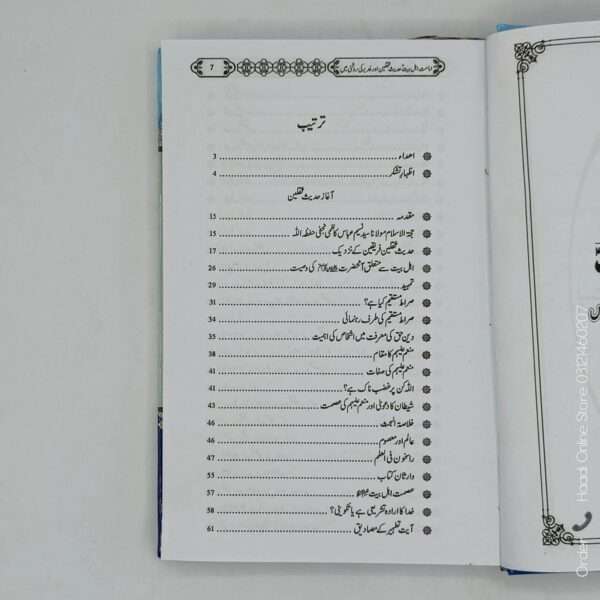 امامت اہل بیت حدیث ثقلین اور غدیر کی روشنی میں 7
ترتیب
اھداء 3
اظہار تشکر 4
آغاز حدیث ثقلین
مقدمہ 15
حجۃ الاسلام مولانا سید نسیم عباس کاظمی نجفی حفظہ اللہ 15
حدیث ثقلین فریقین کے نزدیک 17
اہل بیت سے متعلق آنحضرت کی وصیت 26
تمہید 29
صراط مستقیم کیا ہے؟ 31
صراط مستقیم کی طرف رہنمائی 34
دین حق کی معرفت میں اشخاص کی اہمیت 35
منعم علیہم کا مقام 38
منعم علیہم کی صفات 41
اللہ کن پر غضب ناک ہے؟ 41
شیطان کا دعویٰ اور منعم علیہم کی عصمت 43
خلاصۃ البحث 46
عالم اور معصوم 46
راسخون فی العلم 47
وارثان کتاب 55
عصمت اہل بیت 57
خدا کا ارادہ تشریعی ہے یا تکوینی؟ 58
آیت تطہیر کے مصادیق 61
Order Haadi Online Store 0321460207